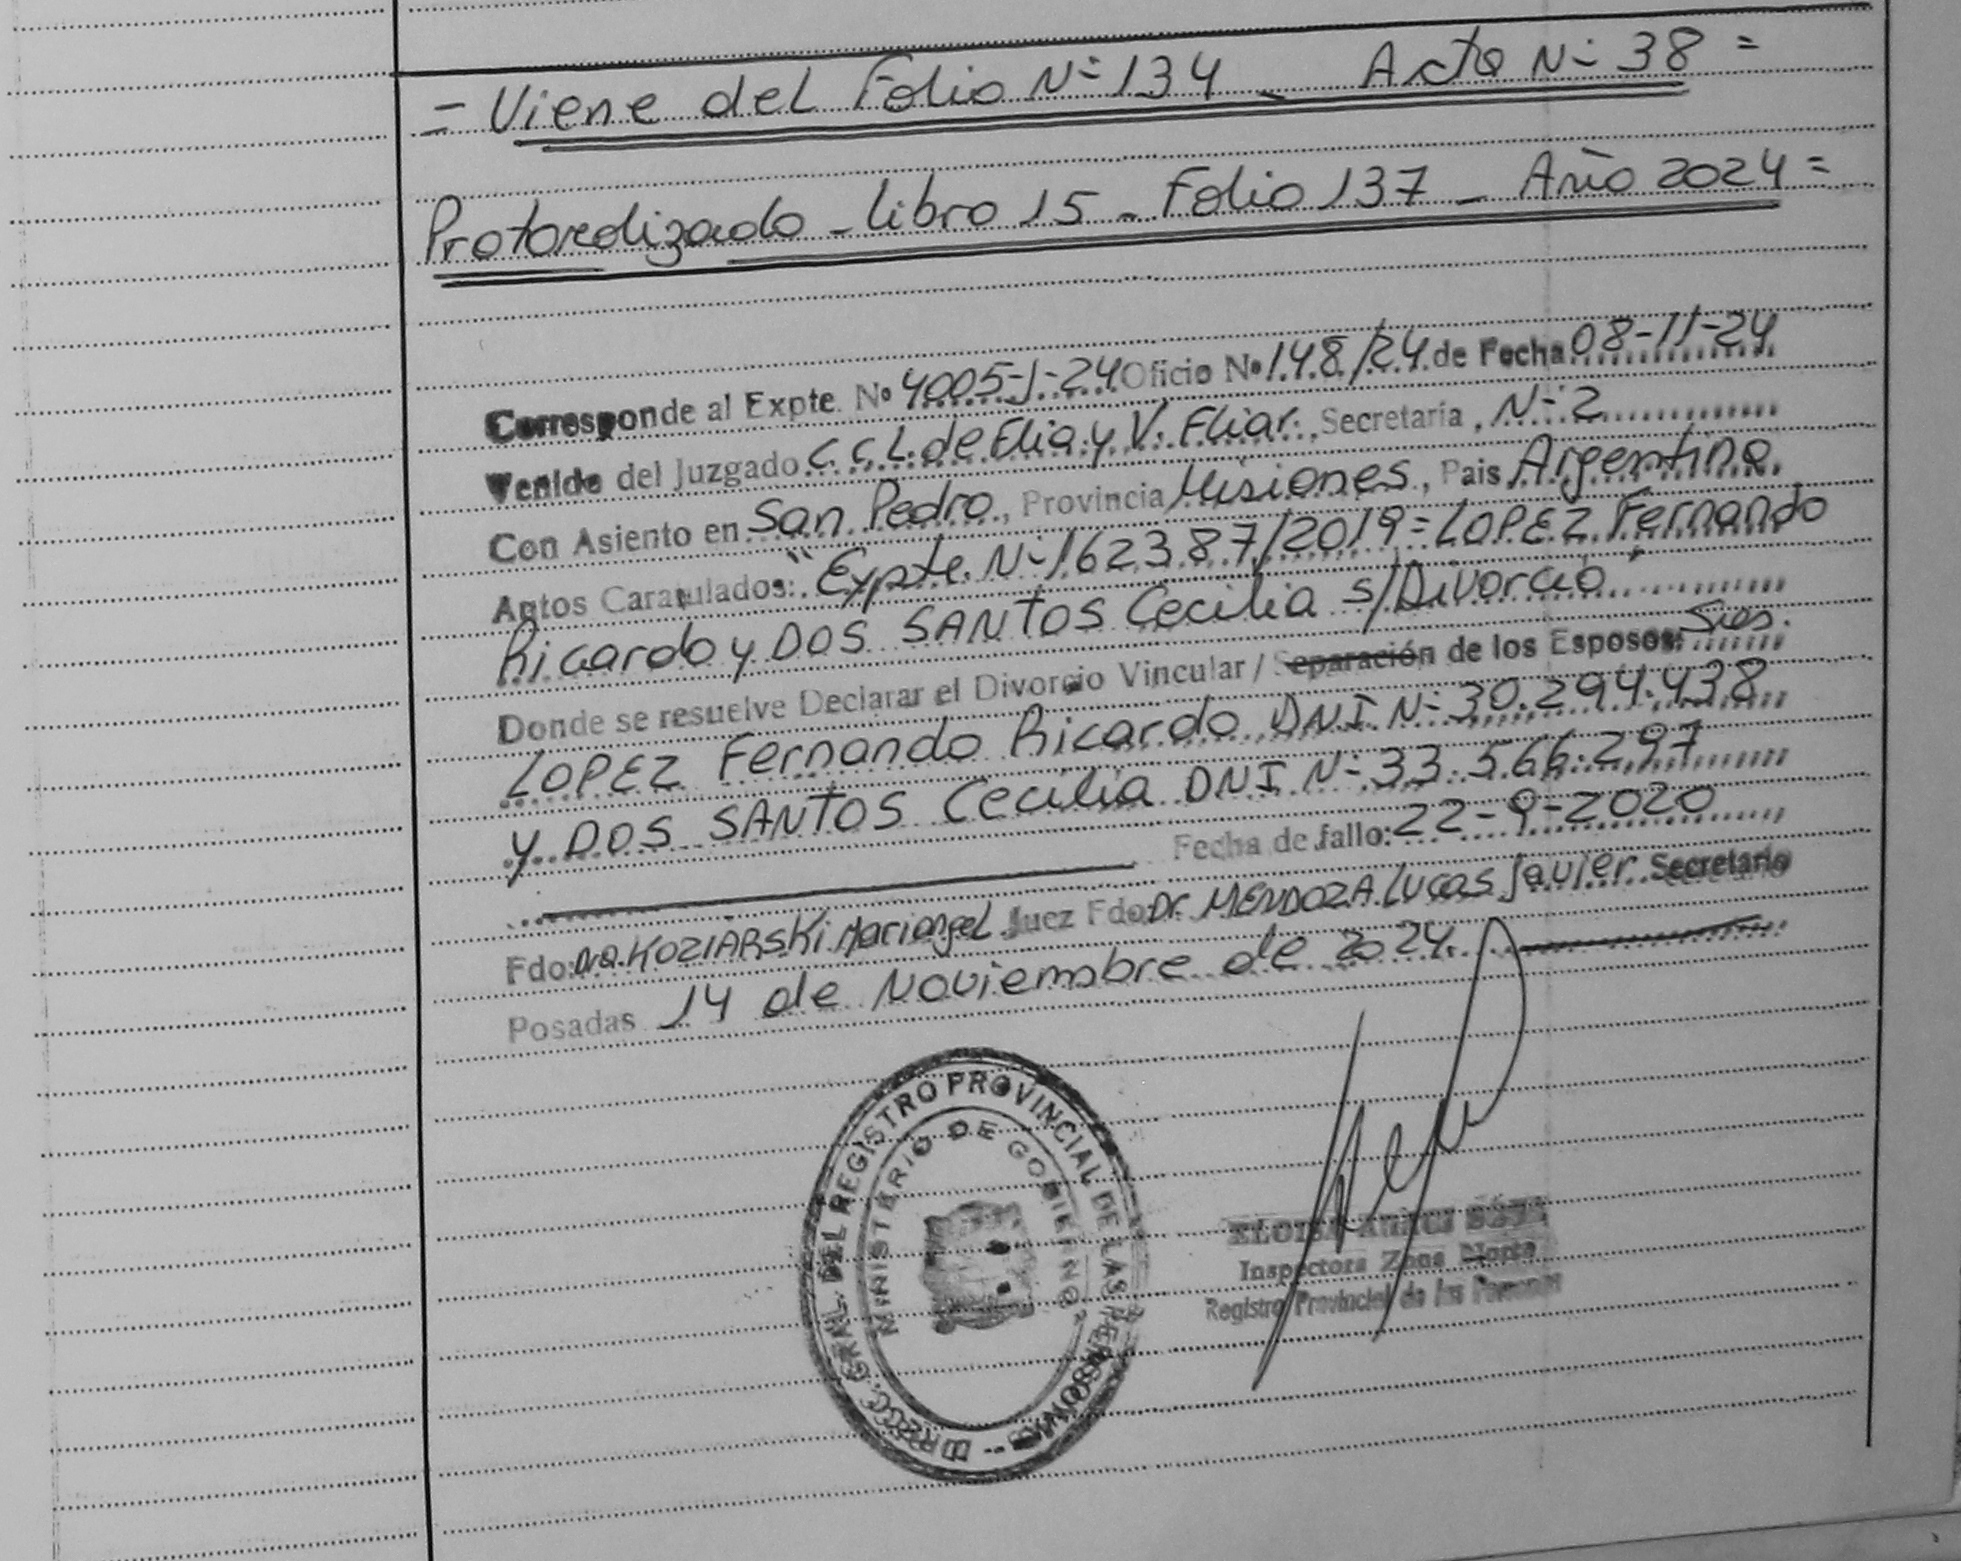 = Viene del Folio N- 134 _ Acta N- 38 =
Protocolizado - libro 15 - Folio 137 - Año 2024 =
Corresponde al Expte. Nº 4005-J-24 Oficio Nº 148/24 de Fecha 08-11-24
Venido del Juzgado C.C.L. de Flia. y V. Fliar., Secretaría, N- 2
Con Asiento en San Pedro, Provincia Misiones, Pais Argentina.
Autos Caratulados: "Expte. N- 162387/2019 = LOPEZ Fernando
Ricardo y DOS SANTOS Cecilia s/Divorcio"
Donde se resuelve Declarar el Divorcio Vincular / Separación de los Esposos: Sres.
LOPEZ Fernando Ricardo DNI N- 30.294.438
y DOS SANTOS Cecilia DNI N- 33.566.297
Fecha de fallo: 22-9-2020
Fdo: Dra. KOZIARSKI Mariangel Juez Fdo Dr. MENDOZA Lucas Javier Secretario
Posadas 14 de Noviembre de 2024.
DIRECC. GRAL. DEL REGISTRO PROVINCIAL DE LAS PERSONAS
MINISTERIO DE GOBIERNO
ELOISA
Inspectora Zona Norte
Registro Provincial de las Personas